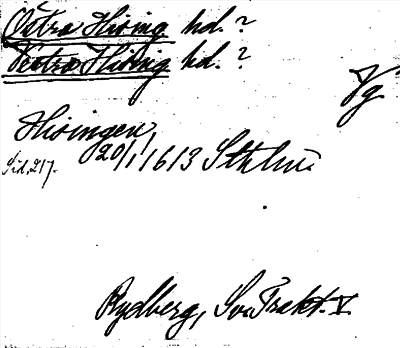 Östra Hising hd. ?
Västra Hising hd. ?
Vg.
Hisingen
20/1 1613 Sthlm.
Sid. 217.
Rydberg, Sv. Trakt. V.